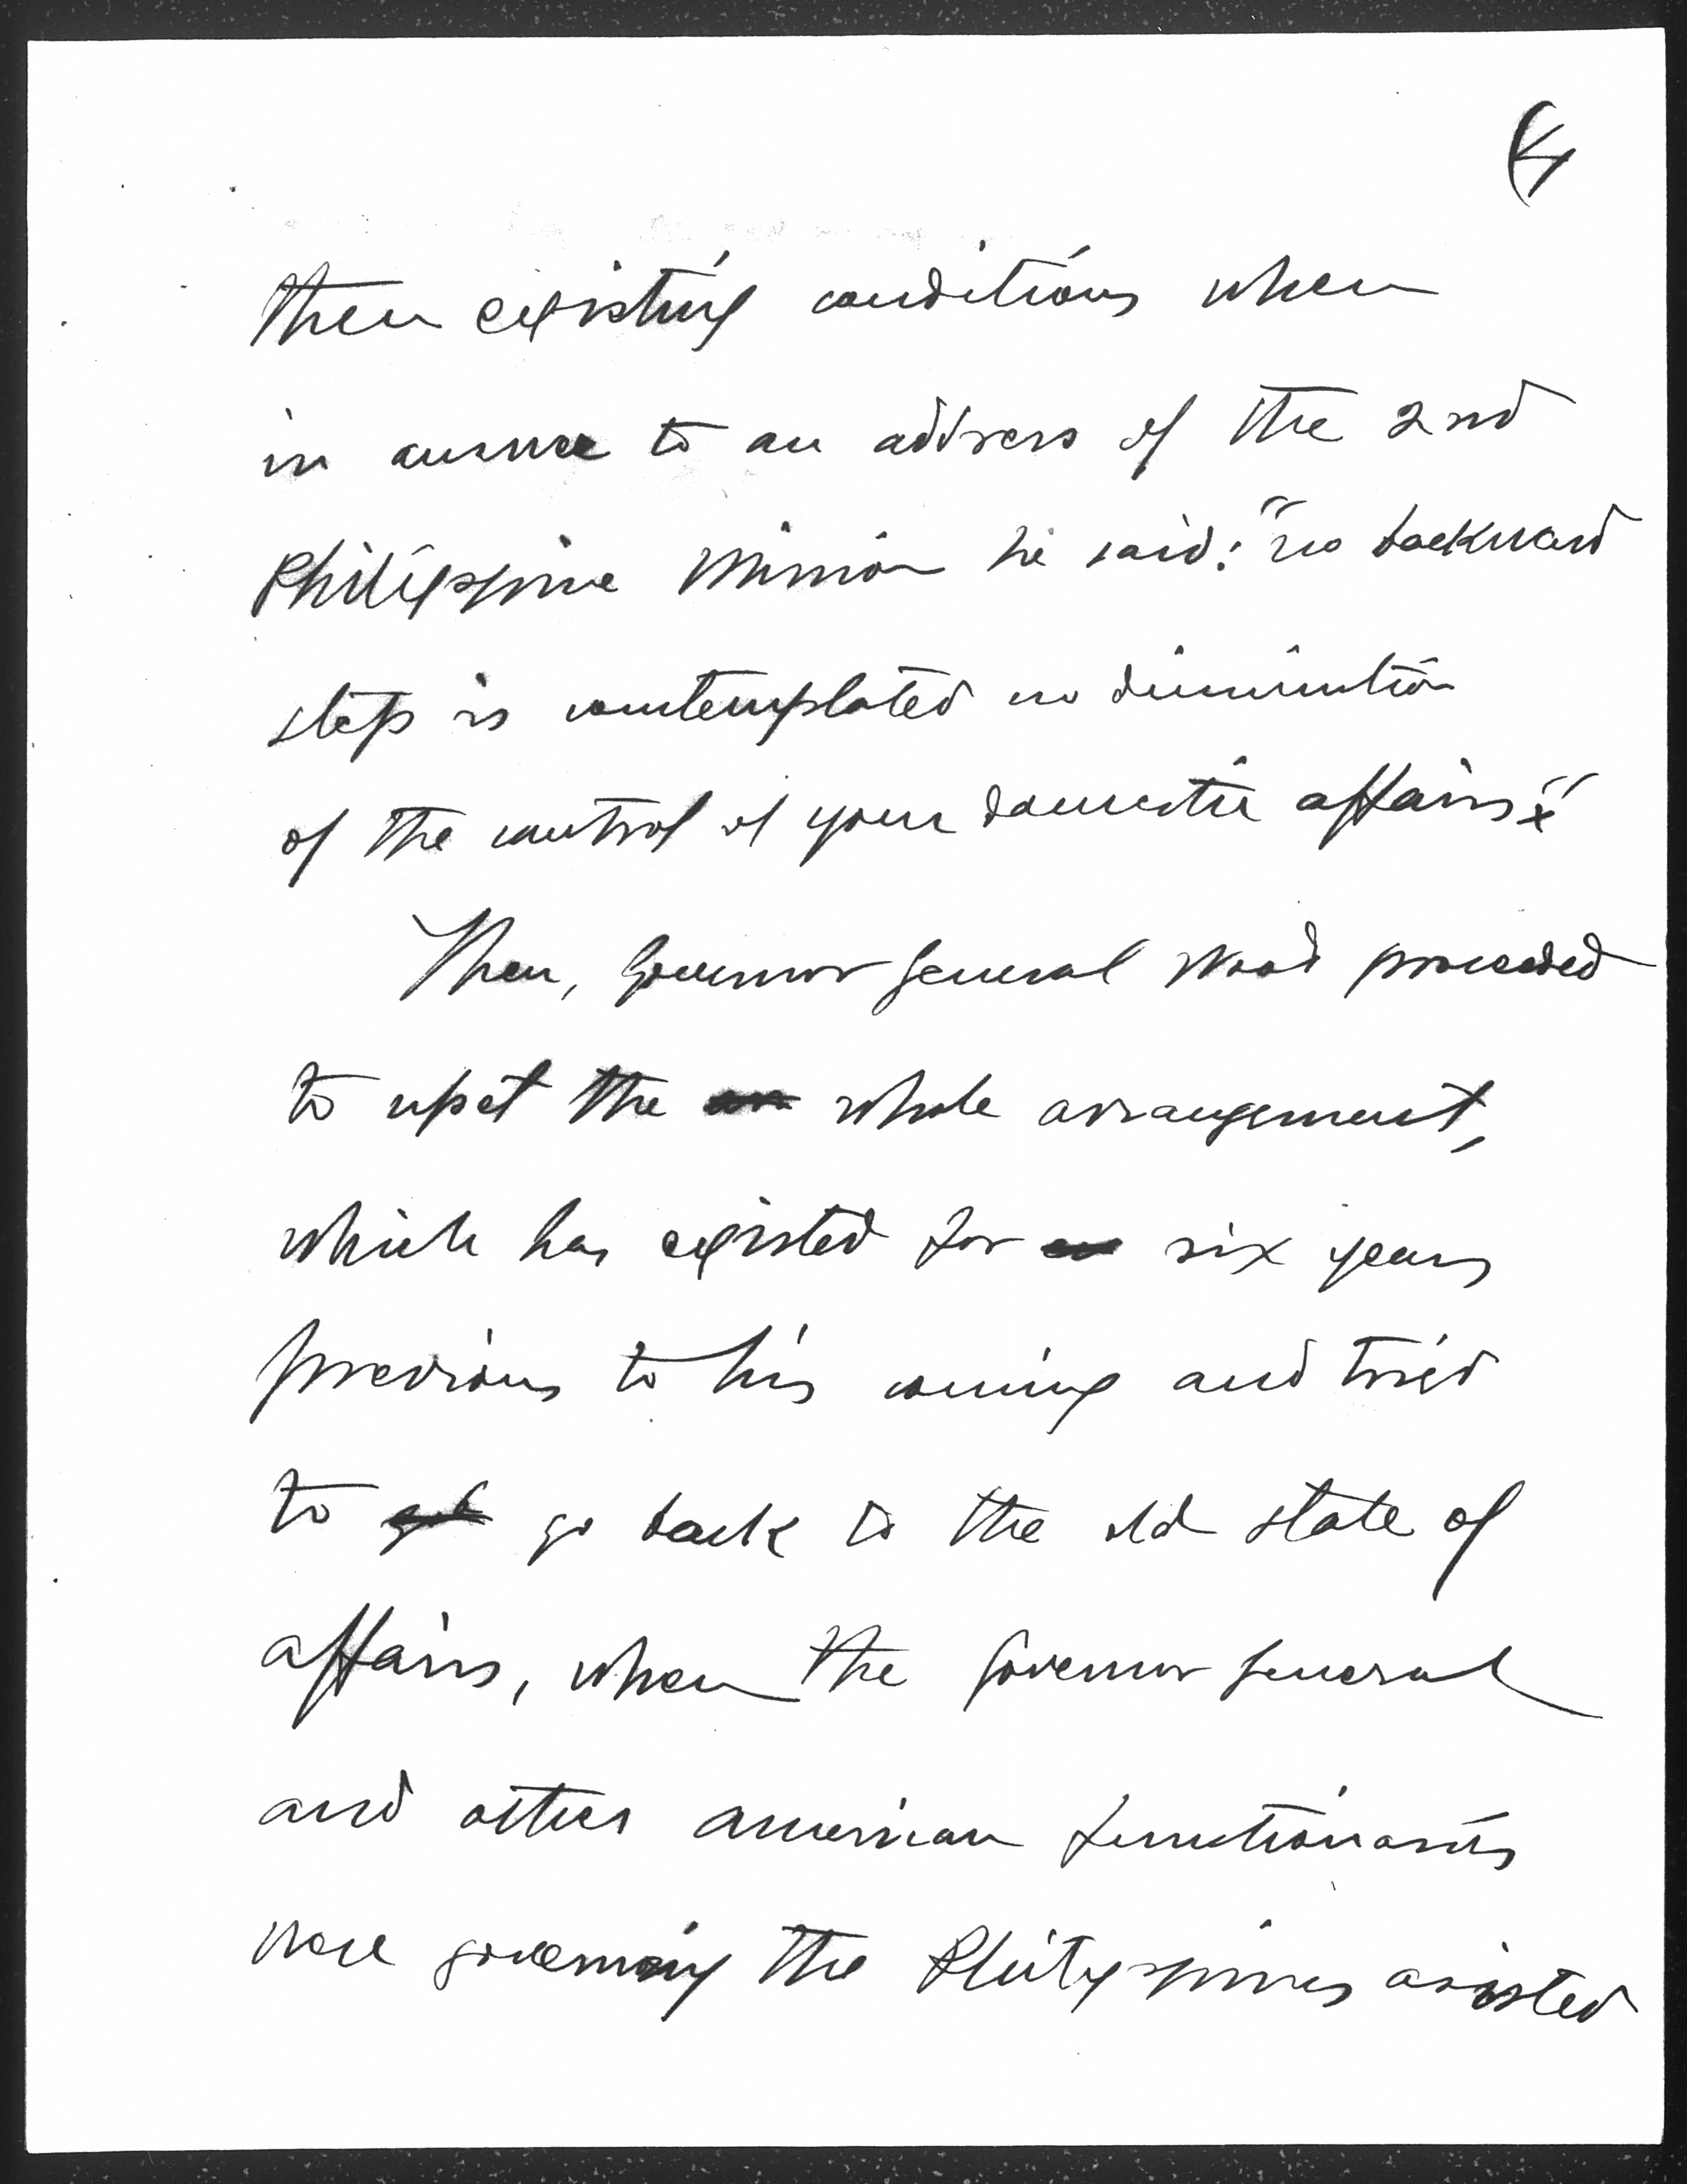 (4
then existing conditions when
in answer to an address of the 2nd
Philippine Mission he said: "no backward
step is contemplated no diminution
of the control of your domestic affairs x"
Then, Governor General Wood proceeded
to upset the whole arrangement,
which has existed for six years
previous to his coming and tried
to go back to the old state of
affairs, when the Governor General
and other American functionaries
were governing the Philippines assisted